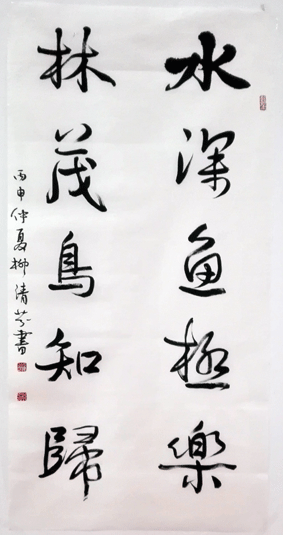 水深鱼極樂
林茂鳥知歸
丙申仲夏柳清芬書